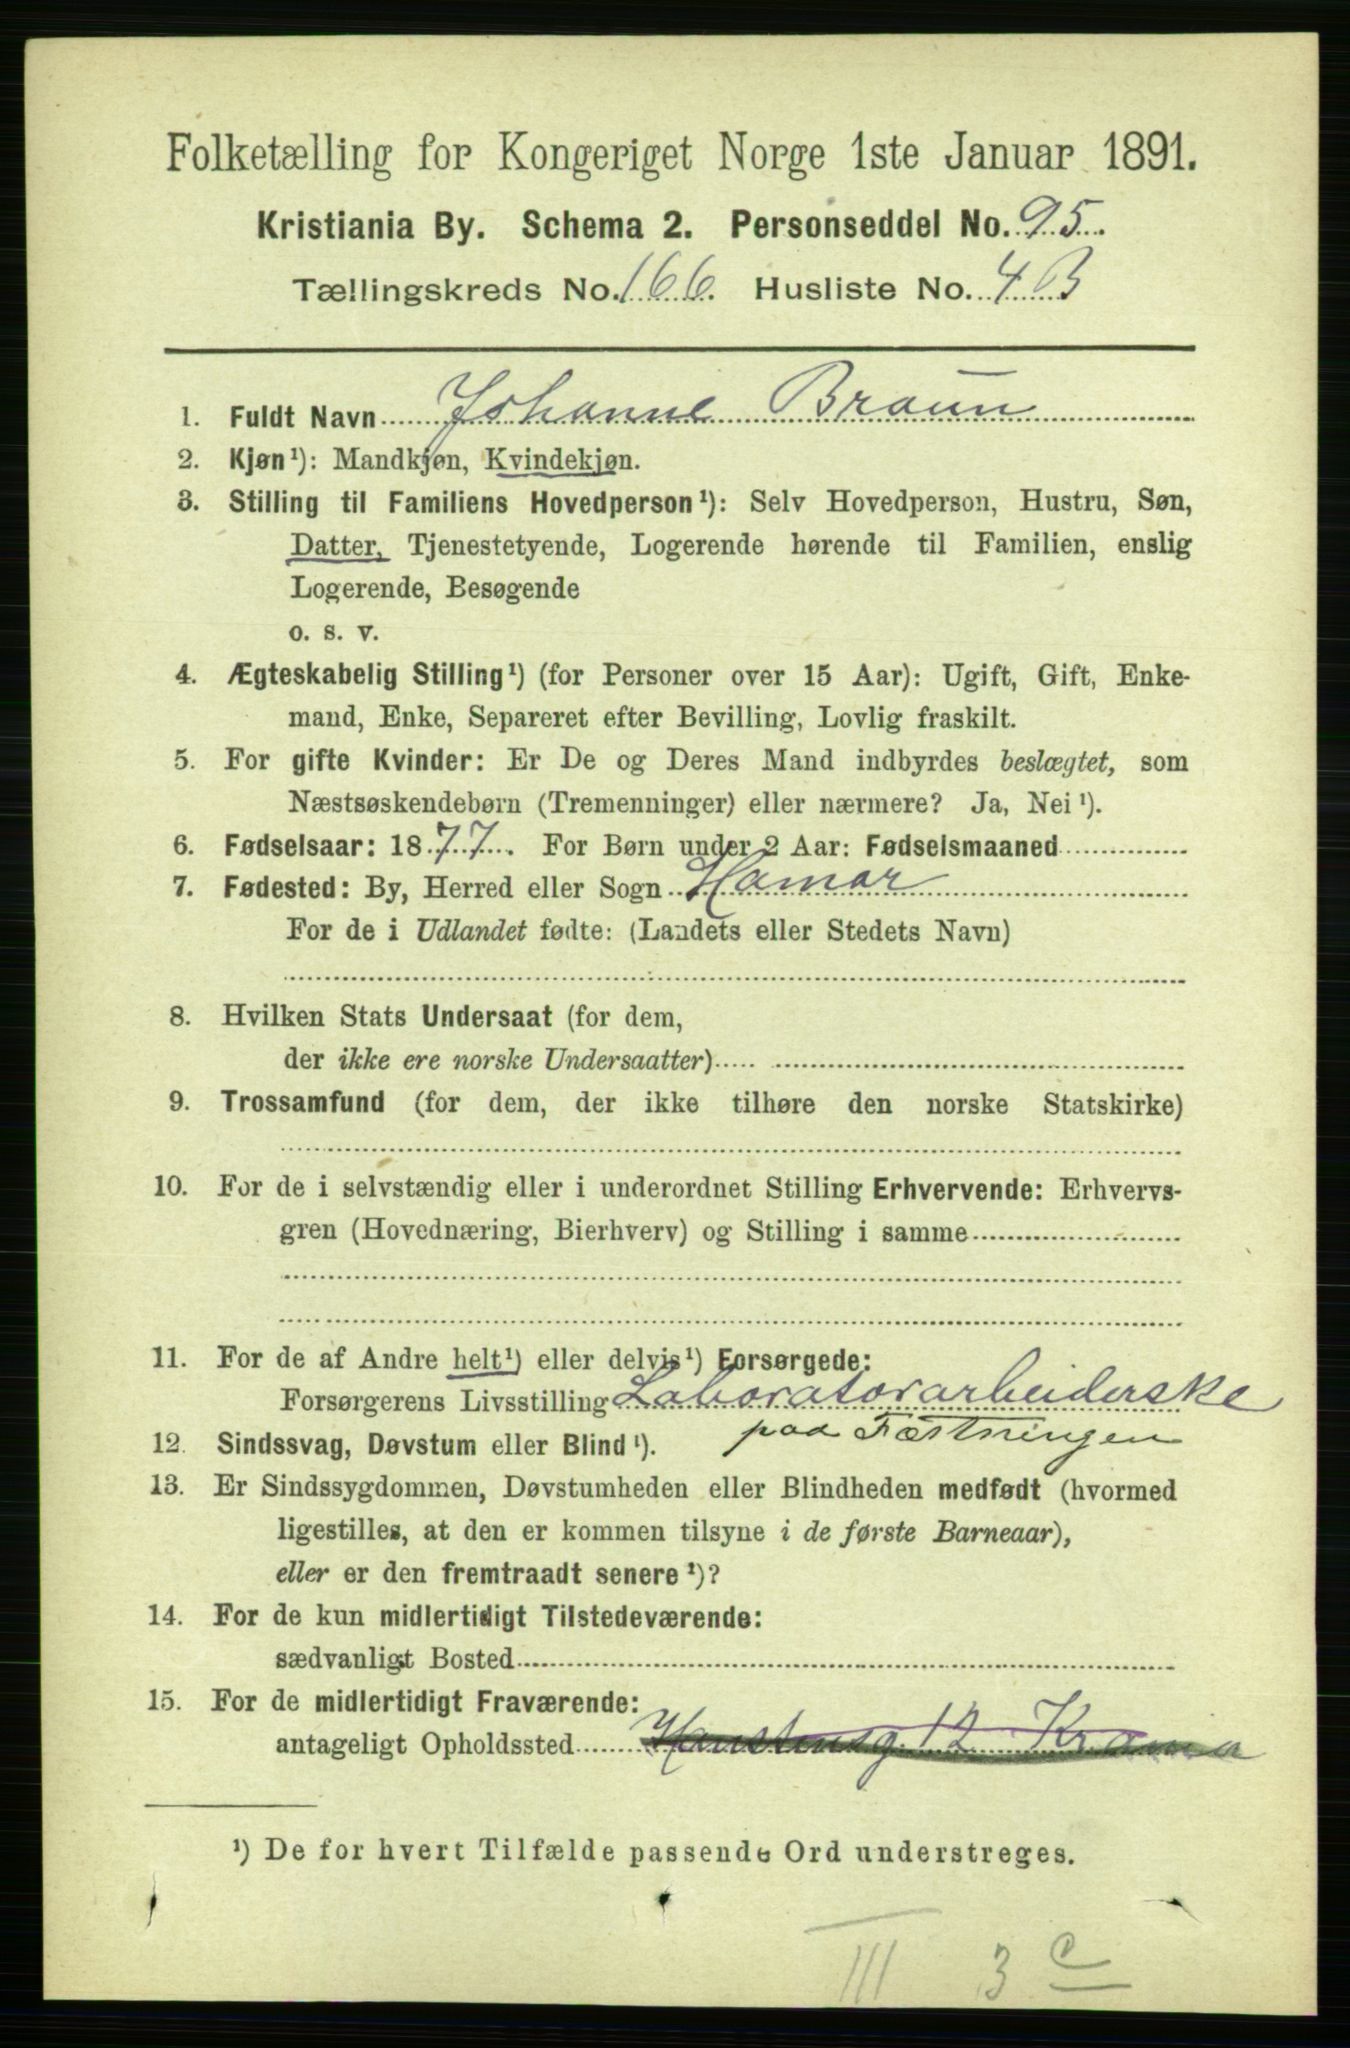 Folketælling for Kongeriget Norge 1ste Januar 1891.
Kristiania By. Schema 2. Personseddel No. 95.
Tællingskreds No. 166. Husliste No. 4 B
1. Fuldt Navn Johanne Braun
2. Kjøn¹): Mandkjøn, Kvindekjøn.
3. Stilling til Familiens Hovedperson¹): Selv Hovedperson, Hustru, Søn,
Datter, Tjenestetyende, Logerende hørende til Familien, enslig
Logerende, Besøgende
o. s. v.
4. Ægteskabelig Stilling¹) (for Personer over 15 Aar): Ugift, Gift, Enke-
mand, Enke, Separeret efter Bevilling, Lovlig fraskilt.
5. For gifte Kvinder: Er De og Deres Mand indbyrdes beslægtet, som
Næstsøskendebørn (Tremenninger) eller nærmere? Ja, Nei¹).
6. Fødselsaar: 1877. For Børn under 2 Aar: Fødselsmaaned
7. Fødested: By, Herred eller Sogn Hamar
For de i Udlandet fødte: (Landets eller Stedets Navn)
8. Hvilken Stats Undersaat (for dem,
der ikke ere norske Undersaatter)
9. Trossamfund (for dem, der ikke tilhøre den norske Statskirke)
10. For de i selvstændig eller i underordnet Stilling Erhvervende: Erhvervs-
gren (Hovednæring, Bierhverv) og Stilling i samme
11. For de af Andre helt¹) eller delvis¹) Forsørgede:
Forsørgerens Livsstilling Laboratorarbeiderske
paa Fæstningen
12. Sindssvag, Døvstum eller Blind¹).
13. Er Sindssygdommen, Døvstumheden eller Blindheden medfødt (hvormed
ligestilles, at den er kommen tilsyne i de første Barneaar),
eller er den fremtraadt senere¹)?
14. For de kun midlertidigt Tilstedeværende:
sædvanligt Bosted
15. For de midlertidigt Fraværende:
antageligt Opholdssted Hanstensg. 12 Krania
¹) De for hvert Tilfælde passende Ord understreges.
III 3 c